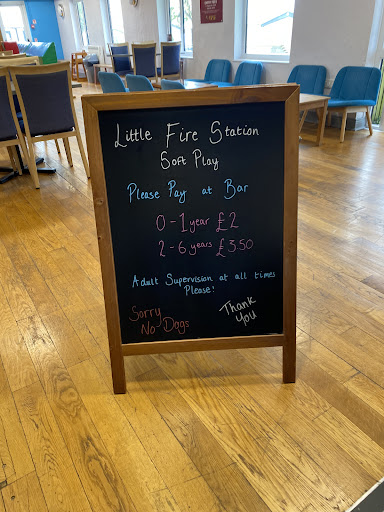 Little Fire Station
Soft Play
Please Pay at Bar
0 - 1 year £2
2 - 6 years £3.50
Adult Supervision at all times
Please!
Sorry
No Dogs
Thank
You